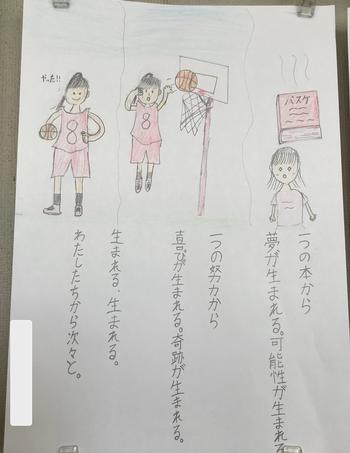 一つの本から
夢が生まれる。可能性が生まれる
一つの努力から
喜びが生まれる。奇跡が生まれる。
生まれる、生まれる。
わたしたちから次々と。
バスケ
8
やった!!
8